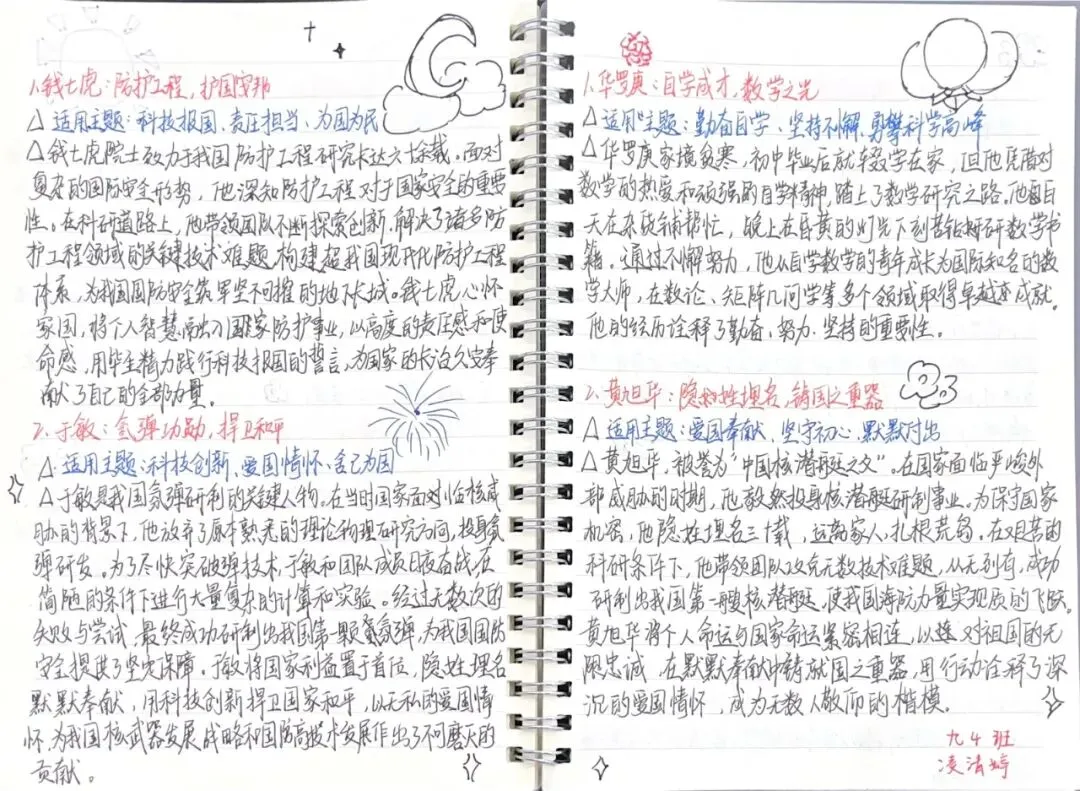 1.钱七虎:防护工程,护国安邦
△适用主题:科技报国、责任担当、为国为民
△钱七虎院士致力于我国防护工程研究长达六十余载。面对
复杂的国际安全形势,他深知防护工程对于国家安全的重要
性。在科研道路上,他带领团队不断探索创新,解决了诸多防
护工程领域的关键技术难题,构建起我国现代化防护工程
体系,为我国国防安全筑牢坚不可摧的地下长城。钱七虎心怀
家国,将个人智慧融入国家防护事业,以高度的责任感和使
命感,用毕生精力践行科技报国的誓言,为国家的长治久安奉
献了自己的全部力量。
2.于敏:氢弹功勋,捍卫和平
△适用主题:科技创新、爱国情怀、舍己为国
△于敏是我国氢弹研制的关键人物。在当时国家面对临核威
胁的背景下,他放弃了原本熟悉的理论物理研究方向,投身氢
弹研发。为了尽快突破弹技术,于敏和团队成员日夜奋战,在
简陋的条件下进行大量复杂的计算和实验。经过无数次的
失败与尝试,最终成功研制出我国第一颗氢弹,为我国国防
安全提供了坚定保障。于敏将国家利益置于首位,隐姓埋名
默默奉献,用科技创新捍卫国家和平,以无私的爱国情
怀,为我国核武器发展战略和国防高技术发展作出了不可磨灭的
贡献。
1.华罗庚:自学成才,数学之光
△适用主题:勤奋自学、坚持不懈、勇攀科学高峰
△华罗庚家境贫寒,初中毕业后就辍学在家,但他凭借对
数学的热爱和顽强的自学精神,踏上了数学研究之路。他白
天在杂货铺帮忙,晚上在昏黄的灯光下刻苦钻研数学书
籍。通过不懈努力,他从自学数学的青年成长为国际知名的数
学大师,在数论、矩阵几何学等多个领域取得卓越成就。
他的经历诠释了勤奋、努力、坚持的重要性。
2.黄旭华:隐姓埋名,铸国之重器
△适用主题:爱国奉献、坚守初心、默默付出
△黄旭华,被誉为“中国核潜艇之父”。在国家面临严峻外
部威胁的时期,他毅然投身核潜艇研制事业。为保守国家
机密,他隐姓埋名三十载,远离家人,扎根荒岛。在艰苦的
科研条件下,他带领团队攻克无数技术难题,从无到有,成功
研制出我国第一艘核潜艇,使我国海防力量实现质的飞跃。
黄旭华将个人命运与国家命运紧密相连,以对祖国的无
限忠诚,在默默奉献中铸就国之重器,用行动诠释了深
沉的爱国情怀,成为无数人敬仰的楷模。
九4班
凌洁婷